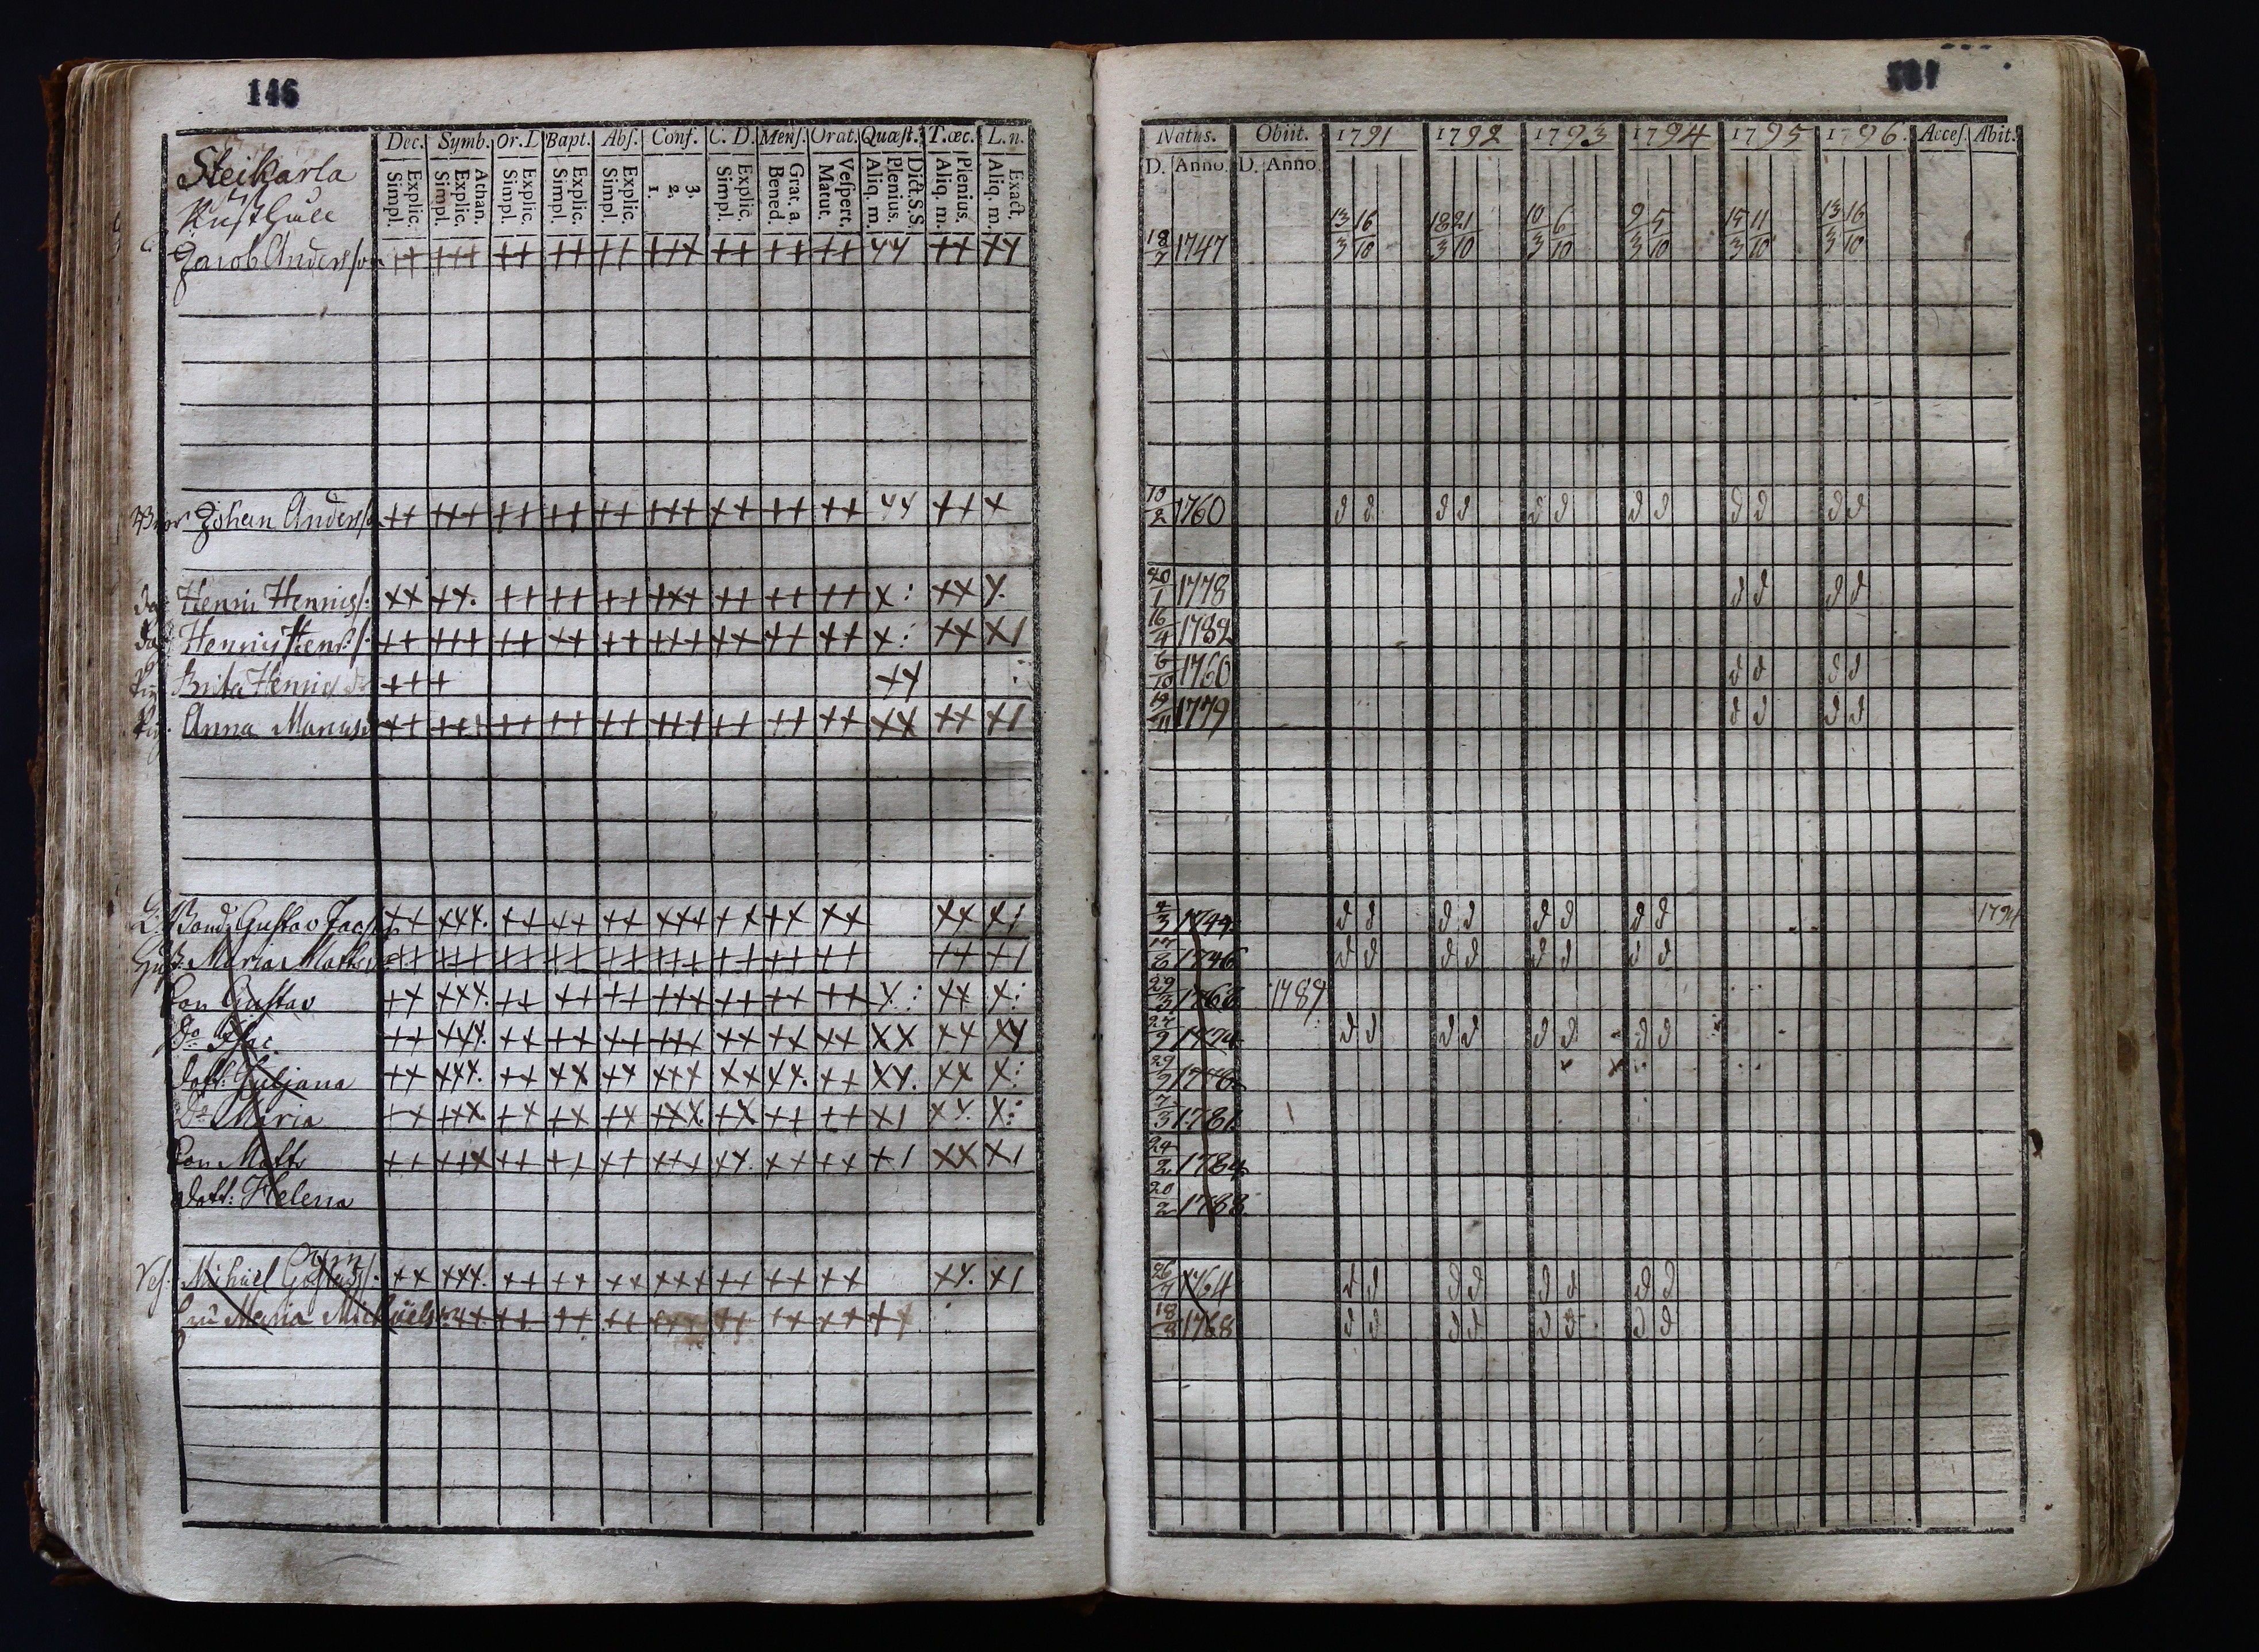 146
Dec. Symb. Or. D Bapt. Abſ. Conf. C. D. Menſ. Orat. Quæſt. T. æc. L. n.
Explic. Simpl. Athan. Explic. Simpl. Explic. Simpl. Explic. Simpl. Explic. Simpl. 3. 2. 1. Explic. Simpl. Grat. a. Bened. Veſpert. Matut. Dict. S. S. Plenius. Aliq. m. Plenius. Aliq. m. Exact. Aliq. m.
Steikarla
Rusthåll
Jacob Andersson
Johan Anders
Henric Henrics
Henric Henr.
Brita Henrics
Anna Marcusd
Bond: Gustav Jacs
Hust. Maria Matts
Son Gustav
Do Isac
dott: Juljana
Do Maria
Son Matts
dott: Helena
Michael
hu Maria Michaels
Natus. Obiit. 1791 1792 1793 1794 1795 1796. Acceſ. Abit.
D. Anno. D. Anno
13/3 16/10 18/3 21/10 10/3 6/10 9/3 5/10 15/3 11/10 13/3 16/10
18/7 1747
10/2 1760 d d d d d d d d d d d d
20/1 1778 d d d d
16/4 1782
6/10 1760 d d d d
19/11 1779 d d d d
1744 d d d d d d d d 1794
17/8 1746 d d d d d d d d
29/3 1766 1789
1774 d d d d d d d d
29/9
7/3 1781
24/2 1784
20/2 1788
1764 d d d d d d d d
18/8 1768 d d d d d d d d